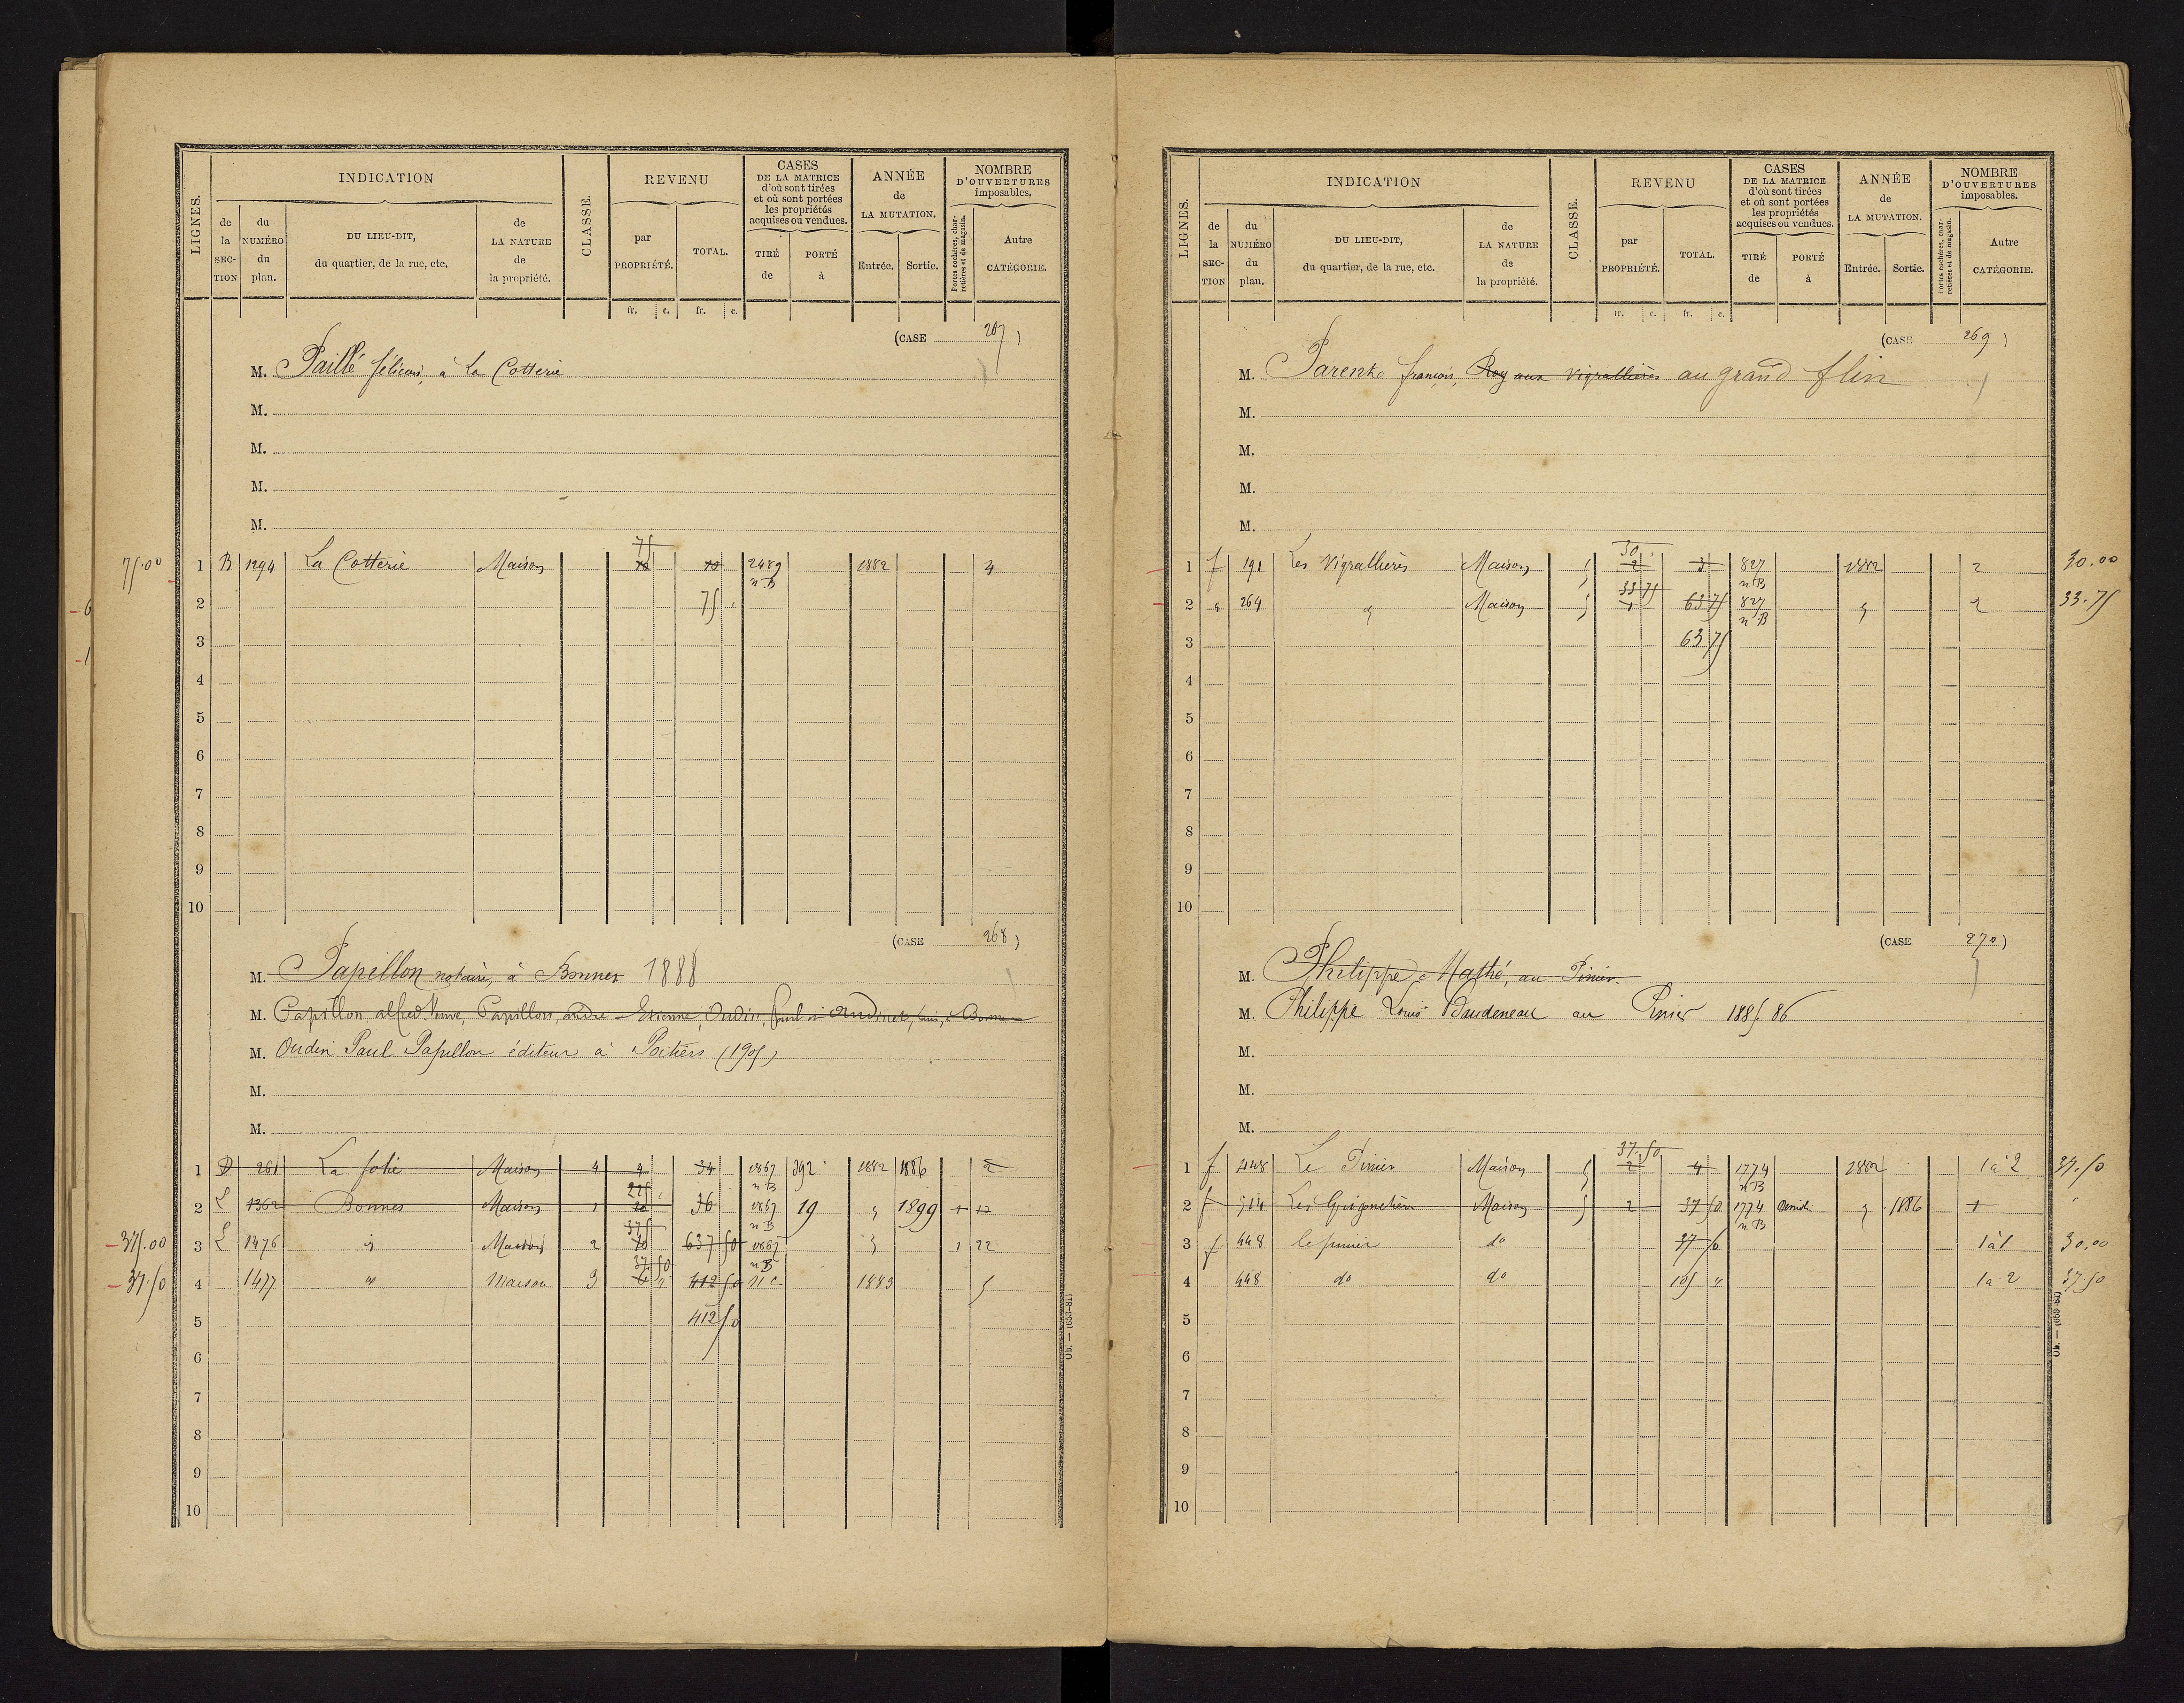 LIGNES.
INDICATION
de la SECTION
du NUMÉRO du plan.
DU LIEU-DIT, du quartier, de la rue, etc.
de LA NATURE de la propriété.
CLASSE.
REVENU
par PROPRIÉTÉ.
TOTAL.
CASES DE LA MATRICE d'où sont tirées et où sont portées les propriétés acquises ou vendues.
TIRÉ de
PORTÉ à
ANNÉE de LA MUTATION.
Entrée.
Sortie.
NOMBRE D'OUVERTURES imposables.
Portes cochères, charretières et de magasin.
Autre CATÉGORIE.
fr. c. fr. c.
(CASE 267)
M. Paillé félicien, à La Cotterie
M.
M.
M.
M.
75
75.00 1 B 1294 La Cotterie Maison 10 10 2489 n B 1882 4
2 75
3
4
5
6
7
8
9
10
(CASE 268)
M. Papillon notaire, à Bonnes 1888
M. Papillon alfred Veuve, Papillon, andré Etienne, Oudin, Paul à Bonnes
M. Oudin Paul Papillon éditeur à Poitiers (1905)
M.
M.
1 D 261 La folie Maison 4 4 34 1867 n B 392 1882 1886 2
225
2 E 1362 Bonnes Maison 1 20 36 1867 n B 19 " 1899 1 12
375
375.00 3 E 1476 " Maison 2 10 637 50 1867 n B " 1 22
37.50
37.50 4 1477 " Maison 3 6 412 50 n c 1883 5
5 412 50
6
7
8
9
10
Ob. — (633-81)
LIGNES.
INDICATION
de la SECTION
du NUMÉRO du plan.
DU LIEU-DIT, du quartier, de la rue, etc.
de LA NATURE de la propriété.
CLASSE.
REVENU
par PROPRIÉTÉ.
TOTAL.
CASES DE LA MATRICE d'où sont tirées et où sont portées les propriétés acquises ou vendues.
TIRÉ de
PORTÉ à
ANNÉE de LA MUTATION.
Entrée.
Sortie.
NOMBRE D'OUVERTURES imposables.
Portes cochères, charretières et de magasin.
Autre CATÉGORIE.
fr. c. fr. c.
(CASE 269)
M. Parent françois, Roy aux Vigrallières au grand flin
M.
M.
M.
M.
30
1 f 191 Les Vigrallières Maison 5 2 3 827 n B 1882 2 30.00
33 75
2 " 264 " Maison 5 1 63 75 827 n B " 2 33.75
3 63 75
4
5
6
7
8
9
10
(CASE 270)
M. Philippe Mathé, au Pinier.
M. Philippe Louis Baudeneau au Pinier 1885 86
M.
M.
M.
37.50
1 f 448 Le Pinier Maison 5 2 4 1774 n B 1882 1 à 2 37.50
2 f 514 Maison 5 2 37 50 1774 n B démoli " 1886 1
3 f 448 le pinier do 37 50 1 à 1 30,00
4 448 do do 105 " 1 à 2 37.50
5
6
7
8
9
10